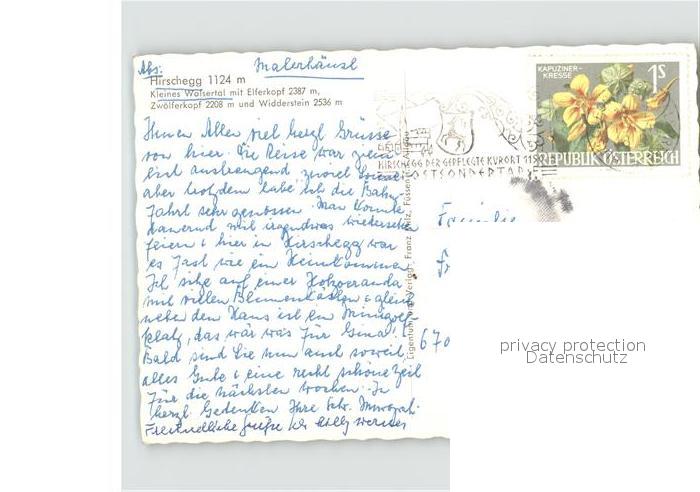 Abs: Malerhäusl
Hirschegg 1124 m
Kleines Walsertal mit Elferkopf 2387 m,
Zwölferkopf 2208 m und Widderstein 2536 m
KAPUZINER-
KRESSE
1S
REPUBLIK ÖSTERREICH
HIRSCHEGG DER GEPFLEGTE KURORT
POSTSONDERTARIF
Ihnen Allen viel herzl Grüsse
von hier. Die Reise war ziem
lich anstrengend zuviel
aber trotzdem habe ich die Bahn
fahrt sehr genossen. Man konnte
dauernd mit irgendwas wiedersehn
feiern & hier in Hirschegg war
es fast wie ein Heimkommen
Ich sitze auf einer Holzveranda
mit vielen Blumenkästen & gleich
neben dem Haus ist ein Minigolf
platz, das wär was für Gina!
Bald sind Sie nun auch soweit,
alles Gute & eine recht schöne Zeit
für die nächsten Wochen. In
herzl. Gedenken Ihre Schw.
Freundliche Grüße
Eigentum und Verlag: Franz Milz, Füssen
Familie
Fr
670
privacy protection
Datenschutz